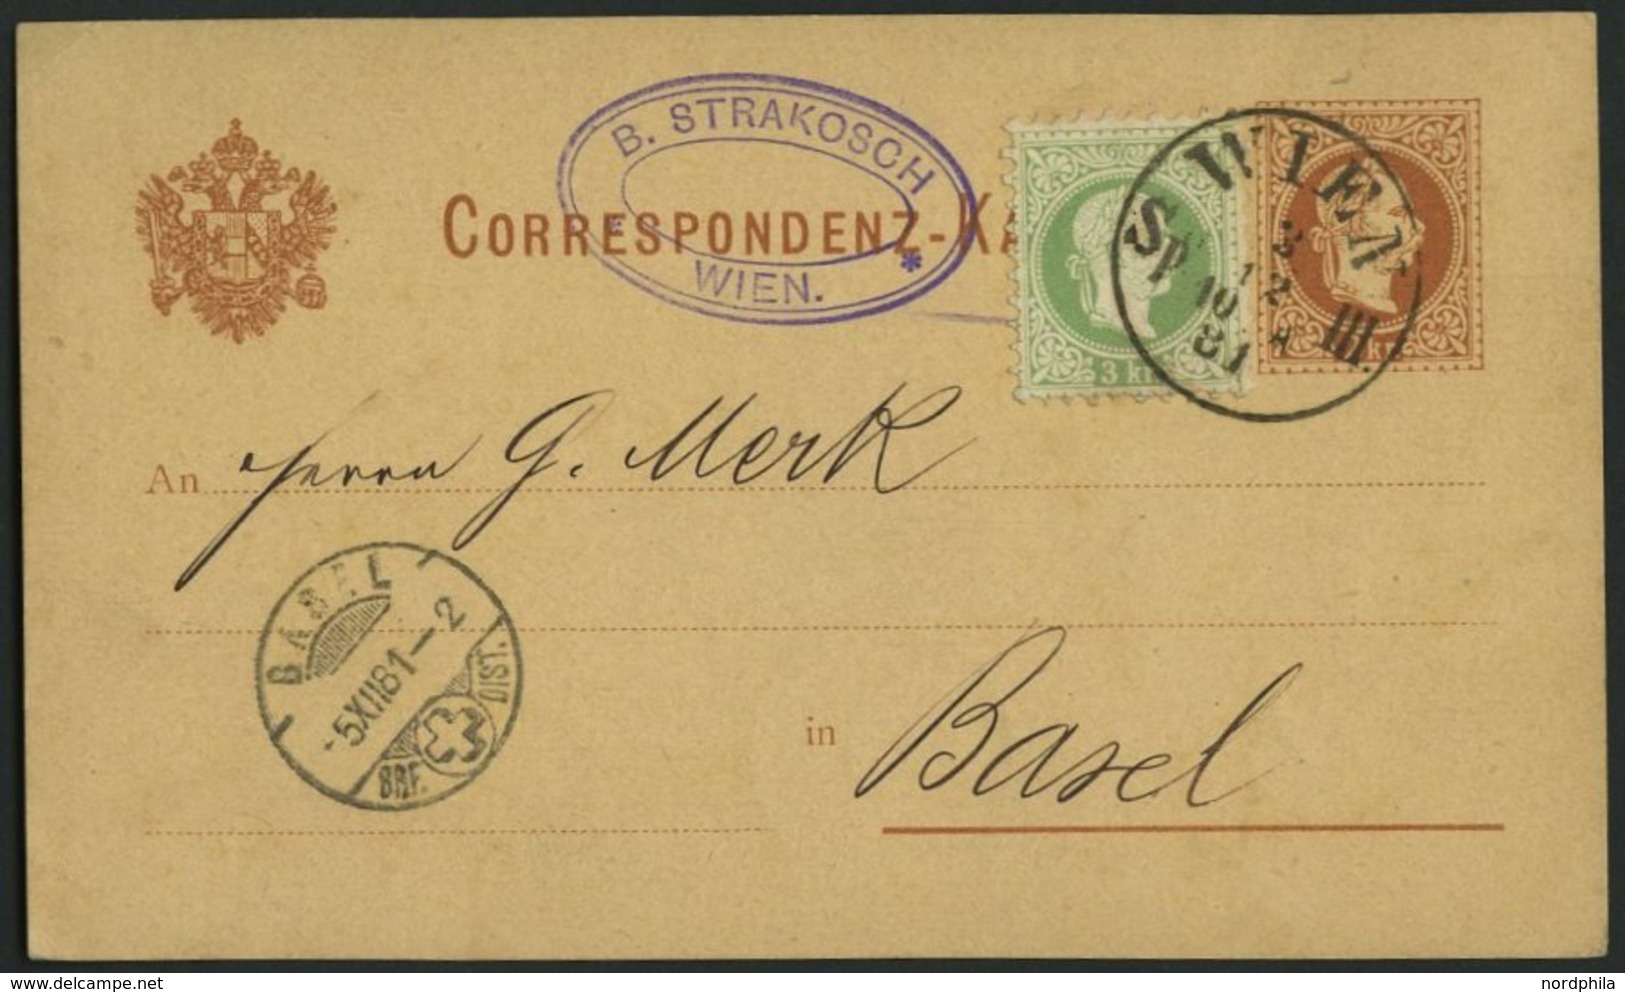 B. STRAKOSCH
WIEN. *
CORRESPONDENZ-KA
WIEN
Sp
3
12
10
81
III.
3 kr
kr.
An Herrn G. Merk
BASEL
-5XII81—2
BRF. DIST.
in Basel
nordphila